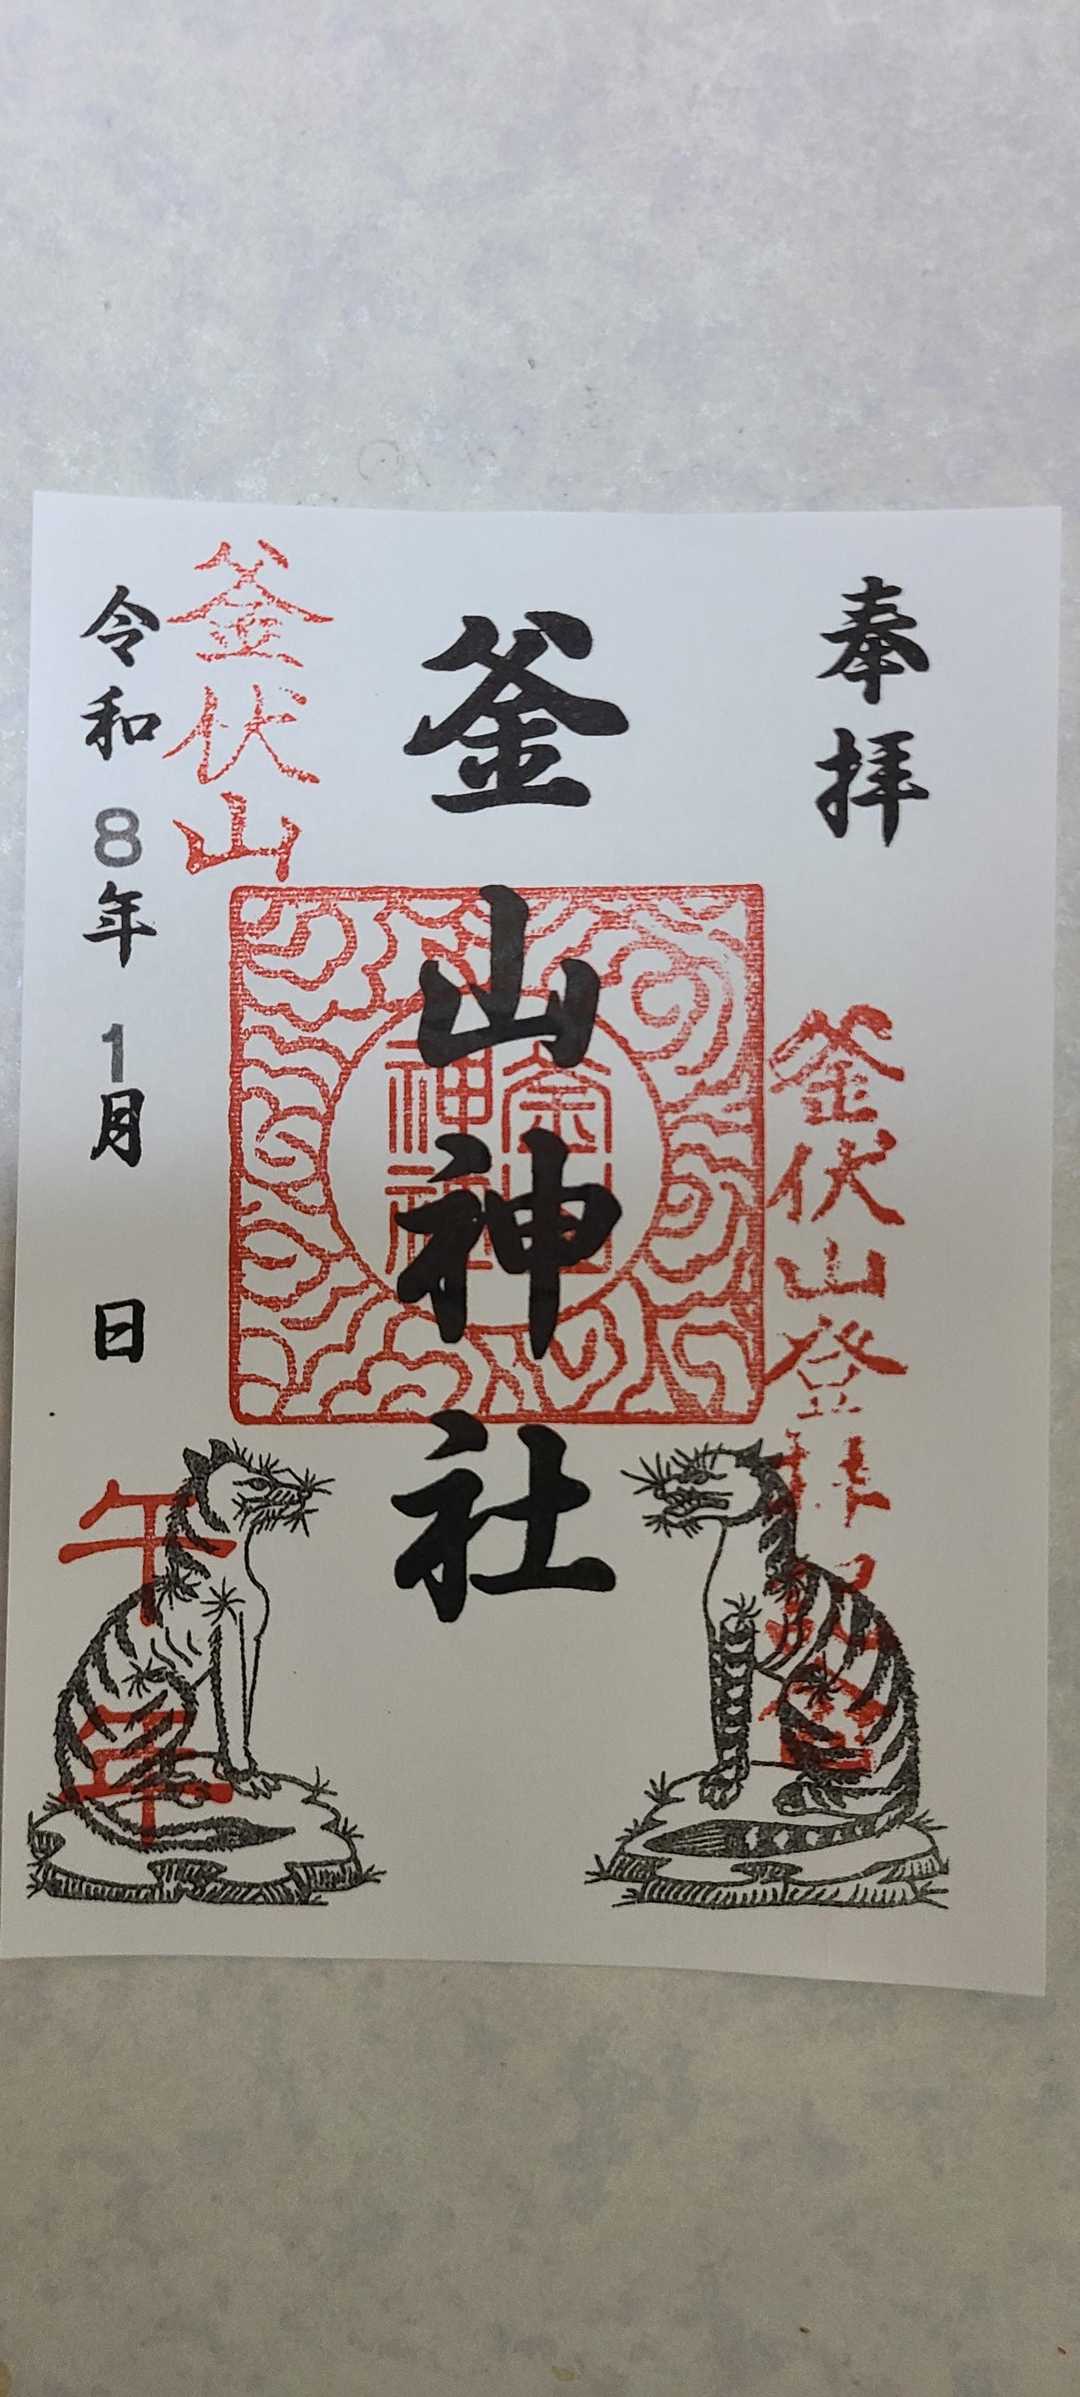 奉拝
釜伏山登拝記念
釜山神社
釜山
神社
釜伏山
令和8年1月 日
午年